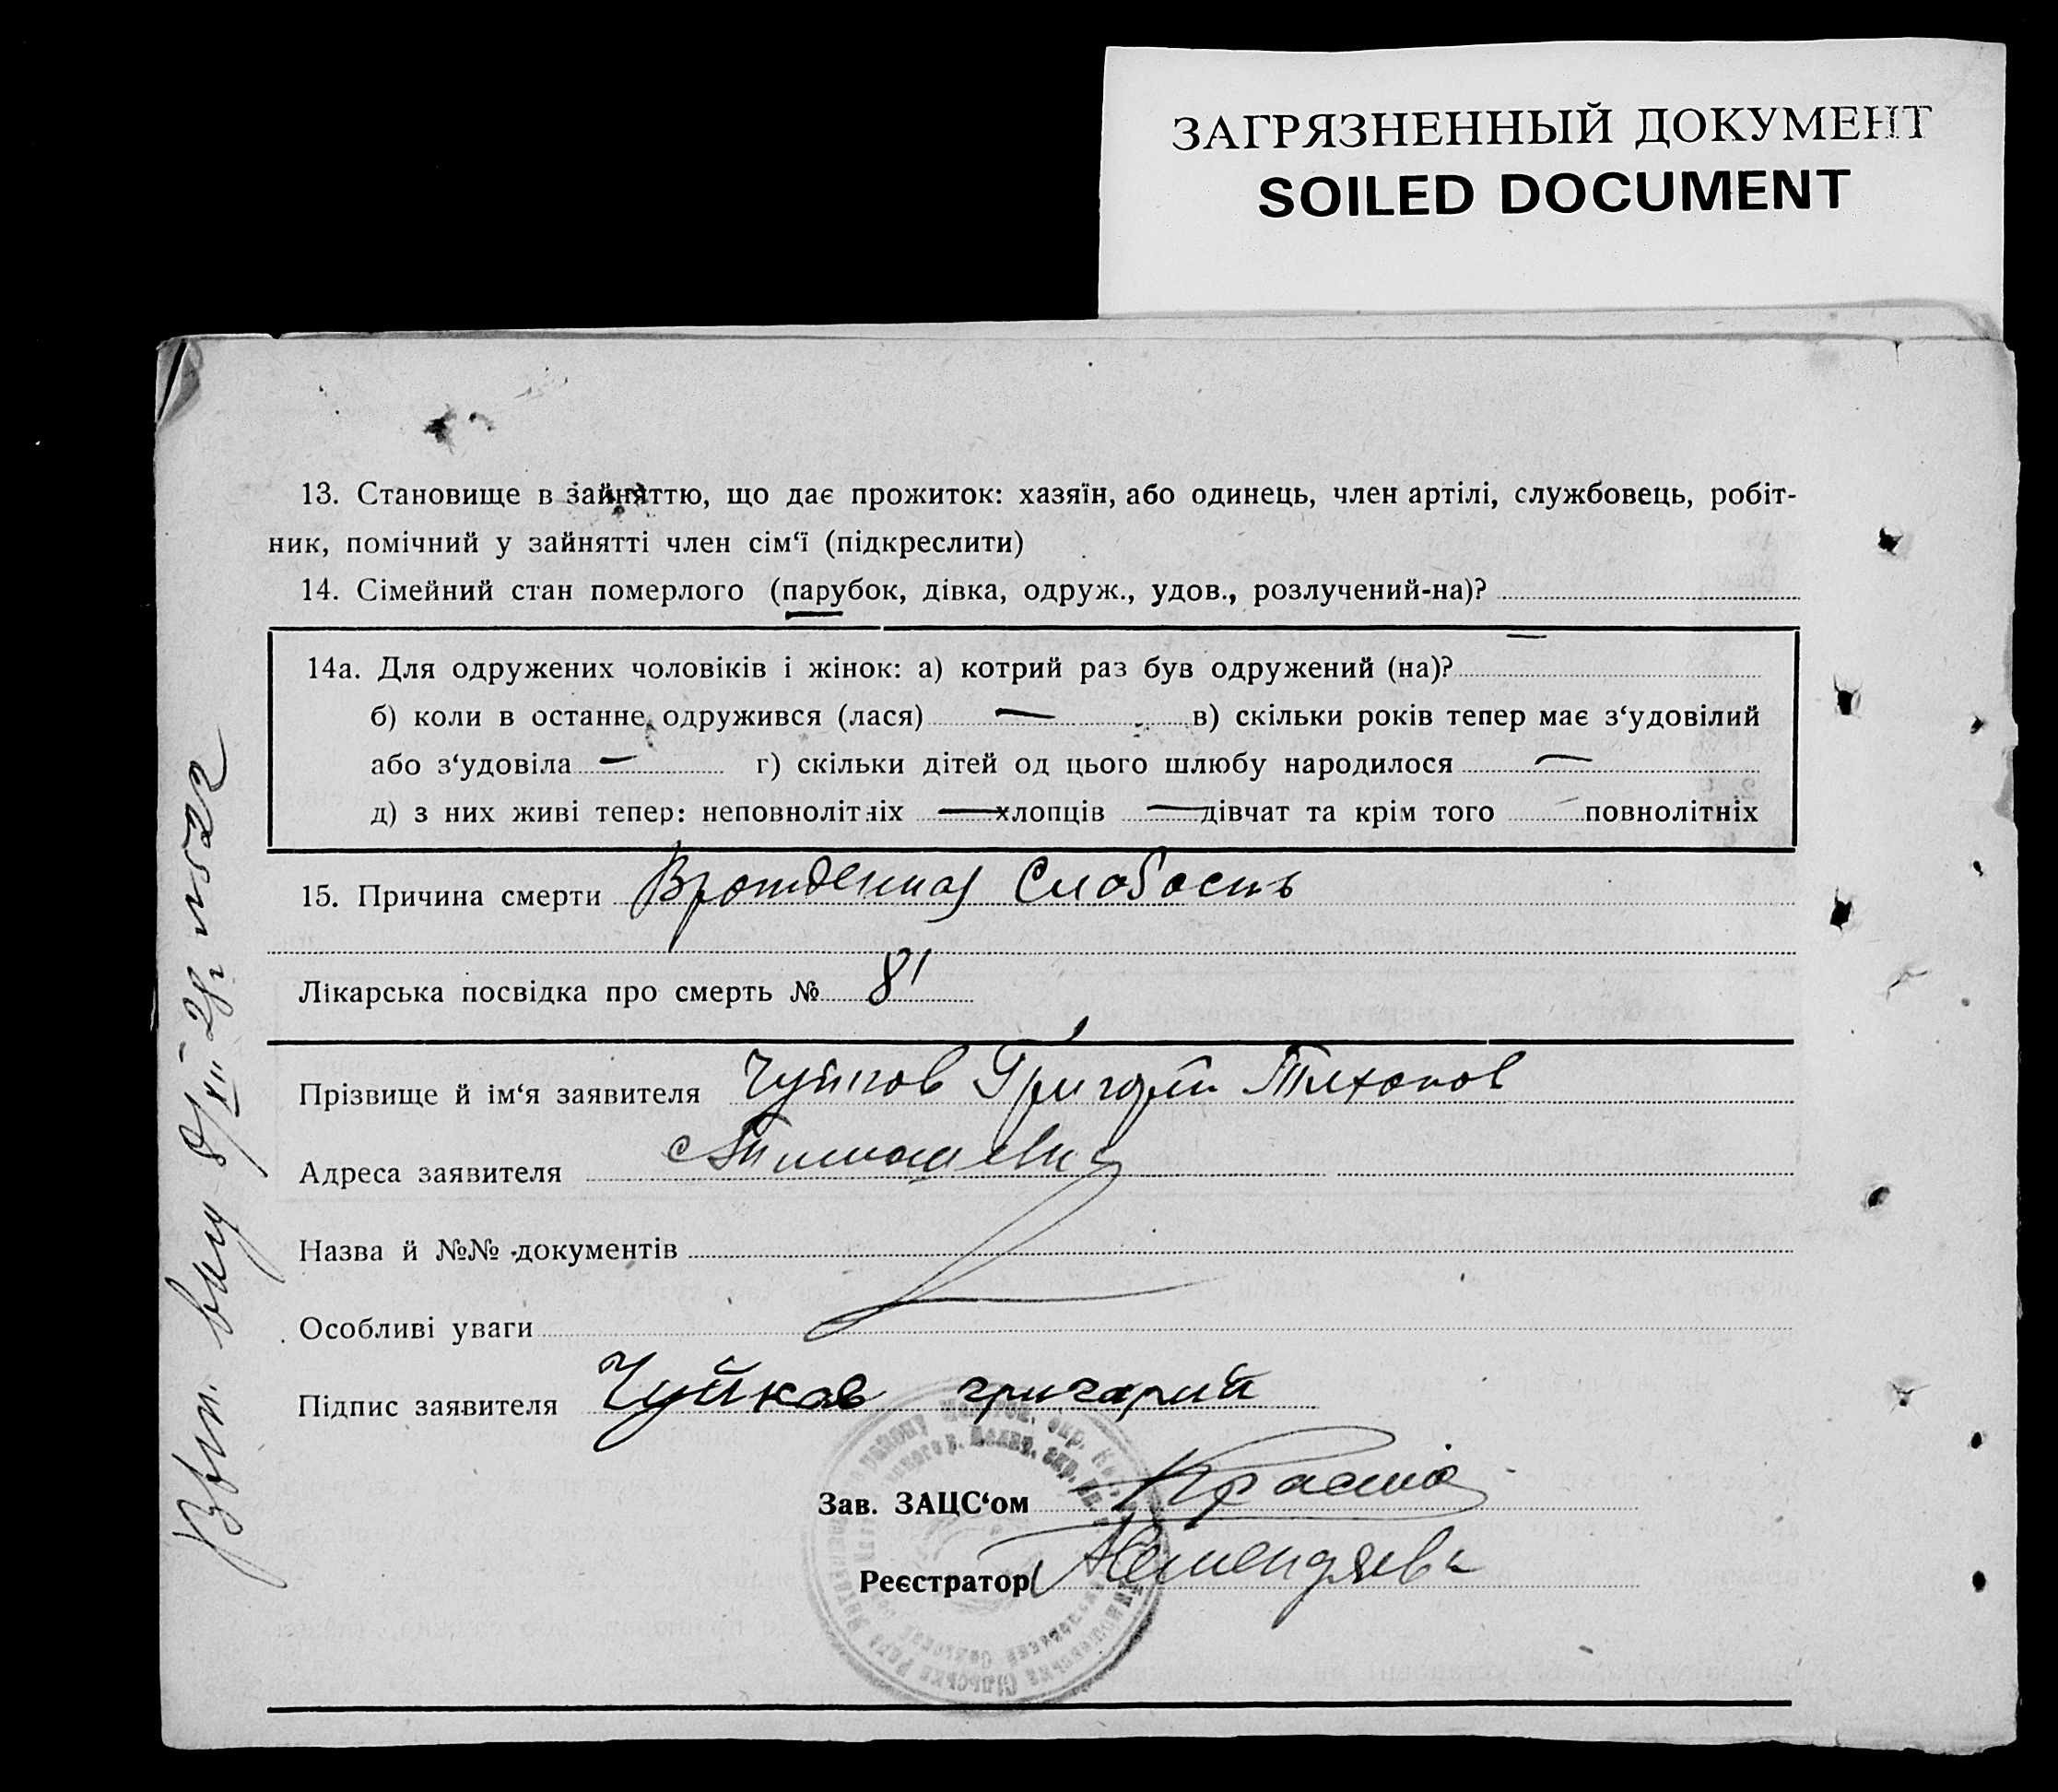 ЗАГРЯЗНЕННЫЙ ДОКУМЕНТ
SOILED DOCUMENT
13. Становище в зайняттю, що дає прожиток: хазяїн, або одинець, член артілі, службовець, робіт-
ник, помічний у зайнятті член сім‘ї (підкреслити)
14. Сімейний стан померлого (парубок, дівка, одруж., удов., розлучений-на)?
14а. Для одружених чоловіків і жінок: а) котрий раз був одружений (на)? —
б) коли в останне одружився (лася) — в) скільки років тепер має з‘удовілий
або з‘удовіла — г) скільки дітей од цього шлюбу народилося —
д) з них живі тепер: неповнолітніх — хлопців — дівчат та крім того — повнолітніх
15. Причина смерти Врожденная Слабость
Лікарська посвідка про смерть № 81
Прізвище й ім‘я заявителя Чуйков Григорий Тихонов
Адреса заявителя
Назва й №№ документів
Особливі уваги
Підпис заявителя Чуйков григарий
Зав. ЗАЦС‘ом
Реєстратор